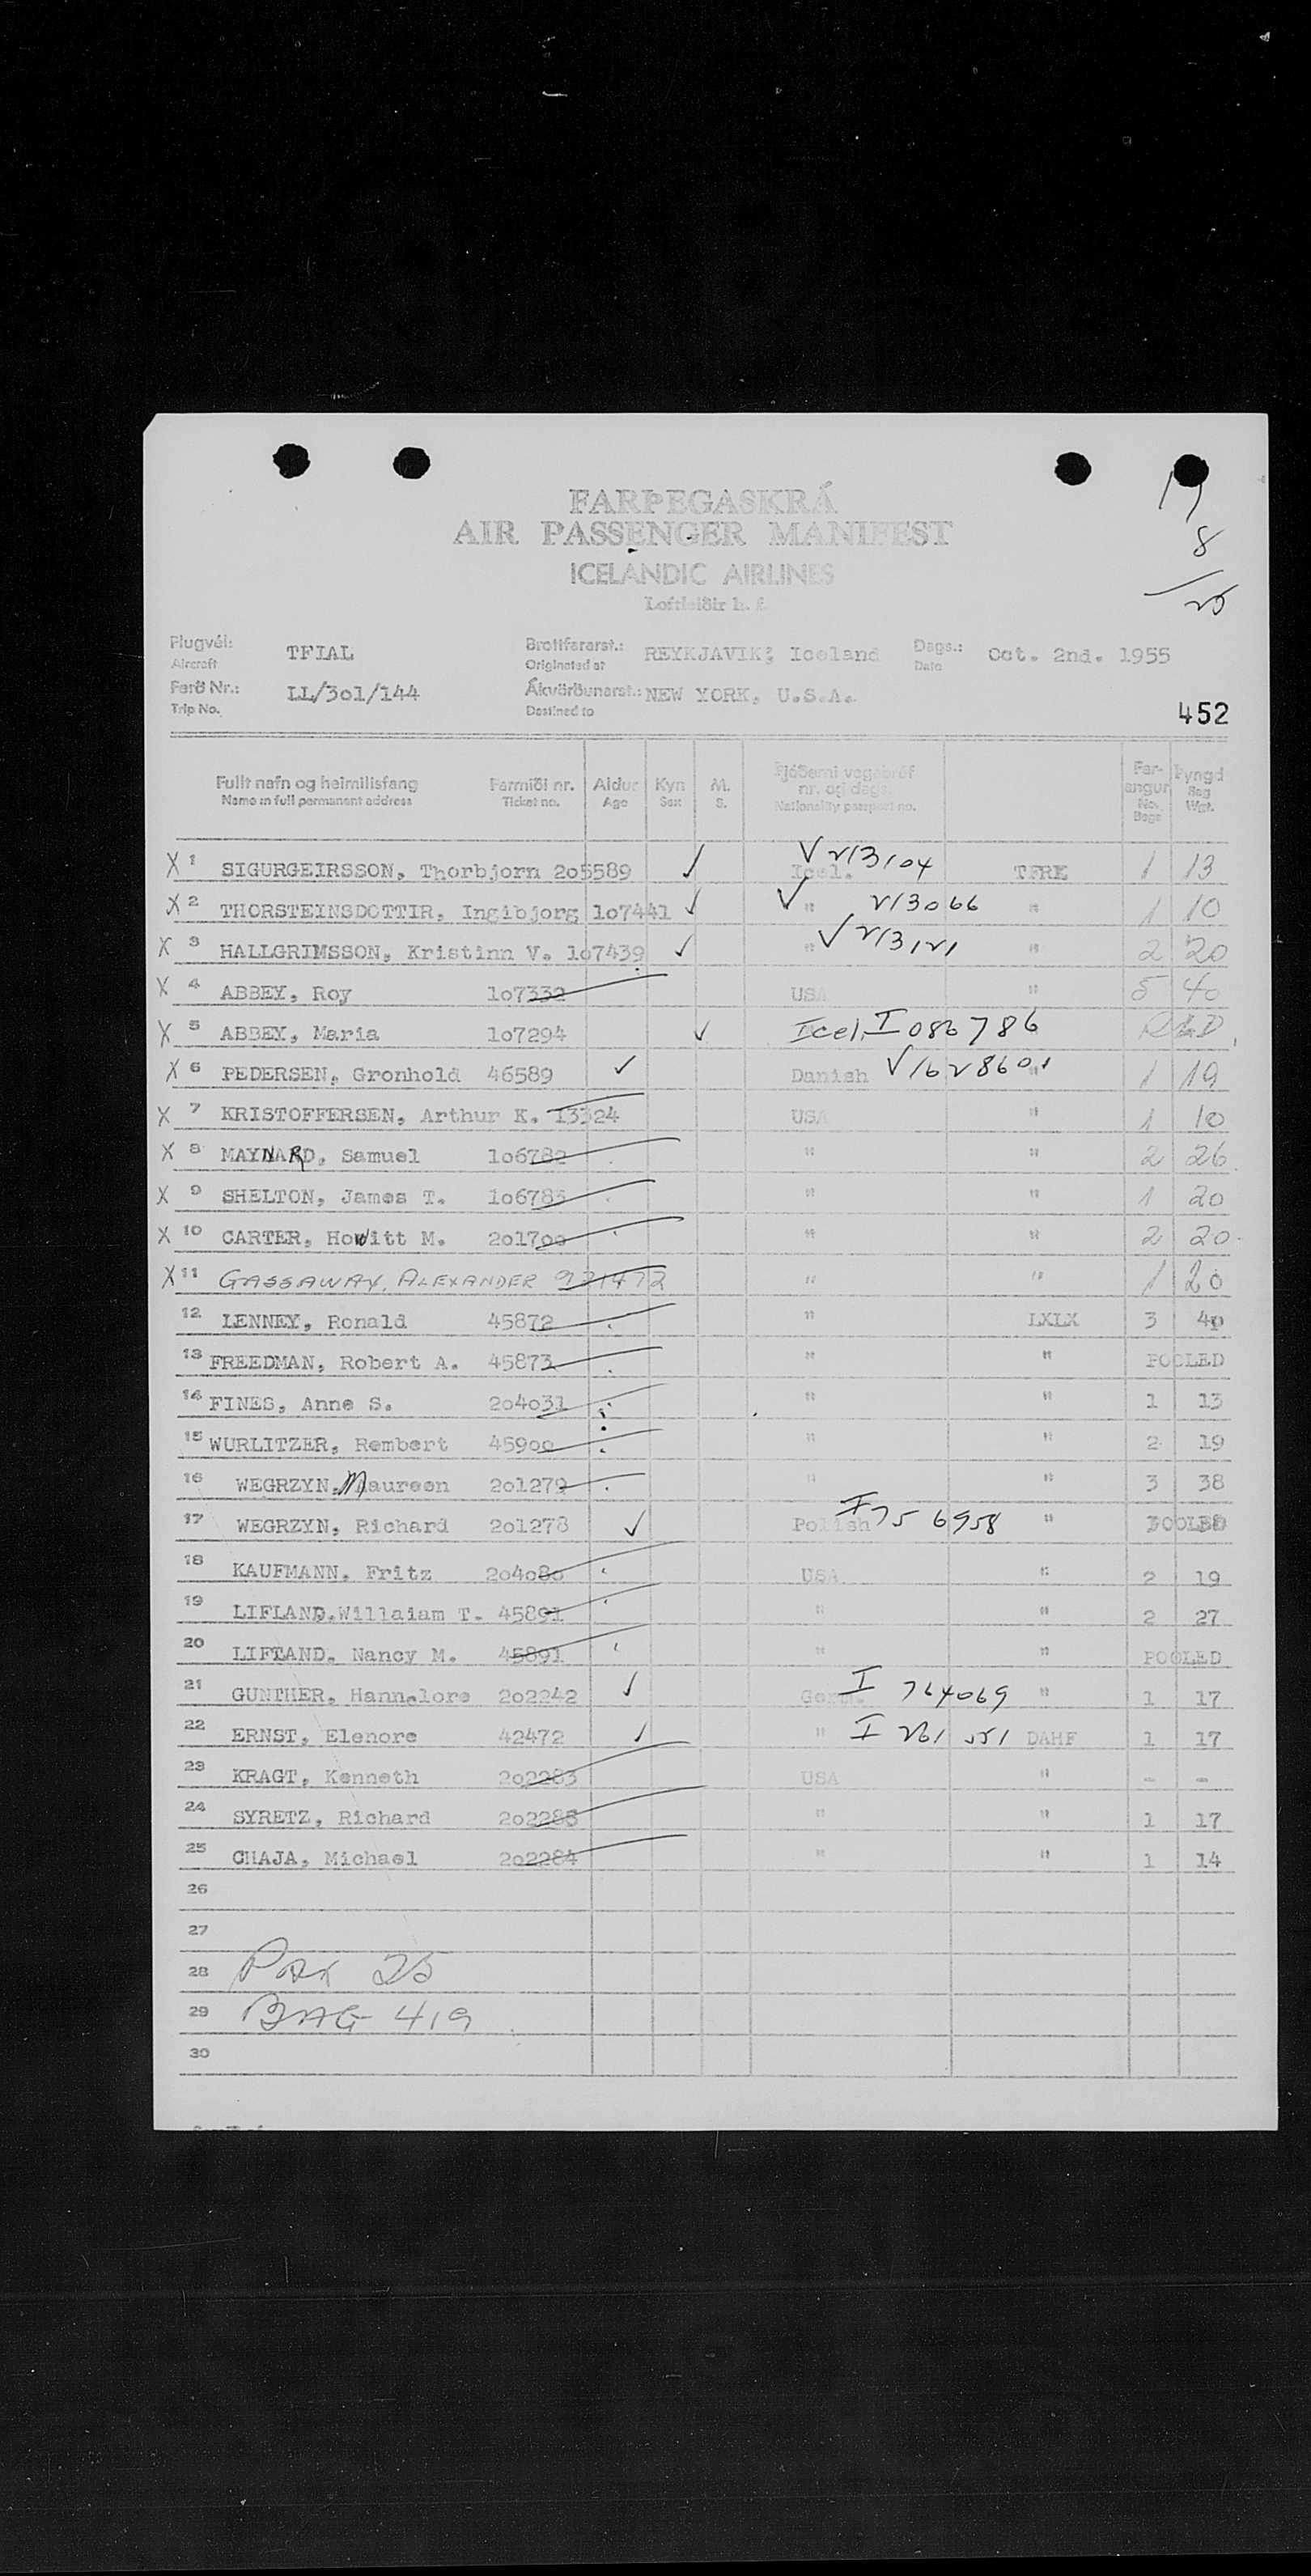 17
8
/25
FARÞEGASKRÁ
AIR PASSENGER MANIFEST
ICELANDIC AIRLINES
Loftleiðir h. f.
Flugvél: Aircraft TFIAL Brottfararst.: Originated at REYKJAVIK; Iceland Dags.: Date Oct. 2nd. 1955
Ferð Nr.: Trip No. LL/3o1/144 Ákvörðunarst.: Destined to NEW YORK, U.S.A.
452
Fullt nafn og heimilisfang Farmiði nr. Aldur Kyn M. Þjóðerni vegabréf nr. og dags. Far-angur Þyngd
Name in full permanent address Ticket no. Age Sex S. Nationality passport no. No. Bags Bag Wgt.
X 1 SIGURGEIRSSON, Thorbjorn 2o5589 ✓ Icel. V213104 TFRK 1 13
X 2 THORSTEINSDOTTIR, Ingibjorg 1o7441 ✓ " V 213066 " 1 10
X 3 HALLGRIMSSON, Kristinn V. 1o7439 ✓ " V213121 " 2 20
X 4 ABBEY, Roy 1o7332 USA " 5 40
X 5 ABBEY, Maria 1o7294 ✓ Icel. I 086786
X 6 PEDERSEN, Gronhold 46589 ✓ Danish V1628601 " 1 19
X 7 KRISTOFFERSEN, Arthur K. 13324 USA " 1 10
X 8 MAYNARD, Samuel 1o6782 " " 2 26
X 9 SHELTON, James T. 1o6783 " " 1 20
X 10 CARTER, Howitt M. 2o17oo " " 2 20
X 11 GASSAWAY, ALEXANDER 921472 " " 1 20
12 LENNEY, Ronald 45872 " LXLX 3 40
13 FREEDMAN, Robert A. 45873 " " POOLED
14 FINES, Anne S. 2o4o31 " " 1 13
15 WURLITZER, Rembert 459oo " " 2 19
16 WEGRZYN, Maureen 2o1279 " " 3 38
17 WEGRZYN, Richard 2o1278 ✓ Polish I756958 " POOLED
18 KAUFMANN. Fritz 2o4o8o USA " 2 19
19 LIFLAND.Willaiam T. 45891 " " 2 27
20 LIFLAND. Nancy M. 45891 " " POOLED
21 GUNTHER, Hannelore 2o2242 ✓ Germ. I 764069 " 1 17
22 ERNST, Elenore 42472 ✓ " I 261551 DAHF 1 17
23 KRAGT, Kenneth 2o2283 USA " - -
24 SYRETZ, Richard 2o2285 " " 1 17
25 CHAJA, Michael 2o2284 " " 1 14
26
27
28 Pax 25
29 BAG 419
30